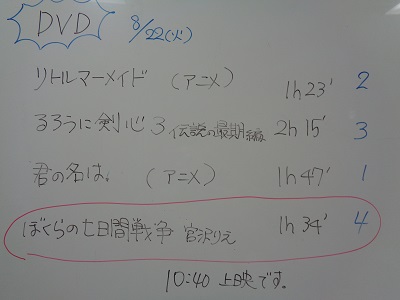 DVD 8/22(火)
リトルマーメイド (アニメ) 1h 23' 2
るろうに剣心3 伝説の最期編 2h 15' 3
君の名は。 (アニメ) 1h 47' 1
ぼくらの七日間戦争 宮沢りえ 1h 34' 4
10:40 上映です。